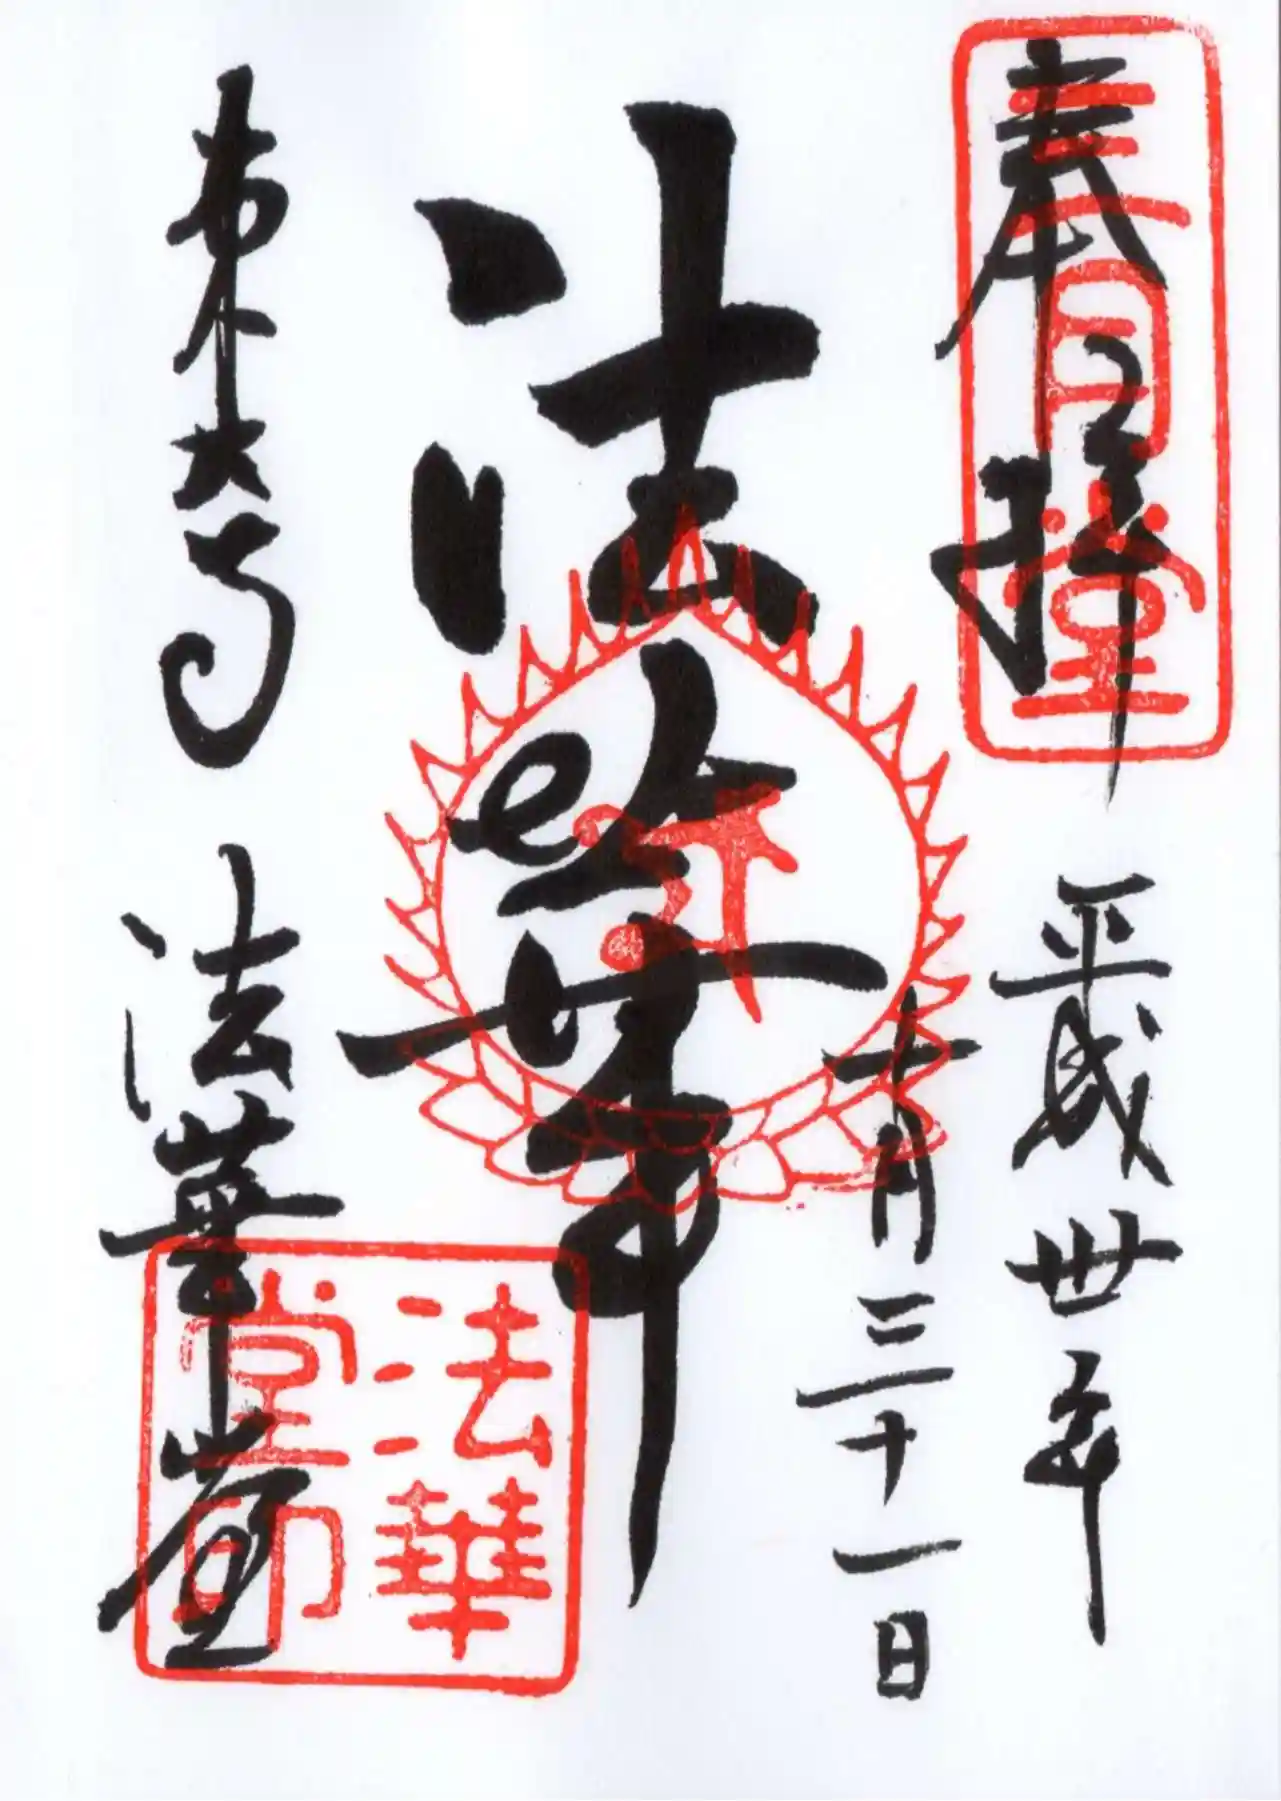 奉拝
三月堂
平成卅年
十月三十一日
法華
東大寺
法華堂
法華
堂印